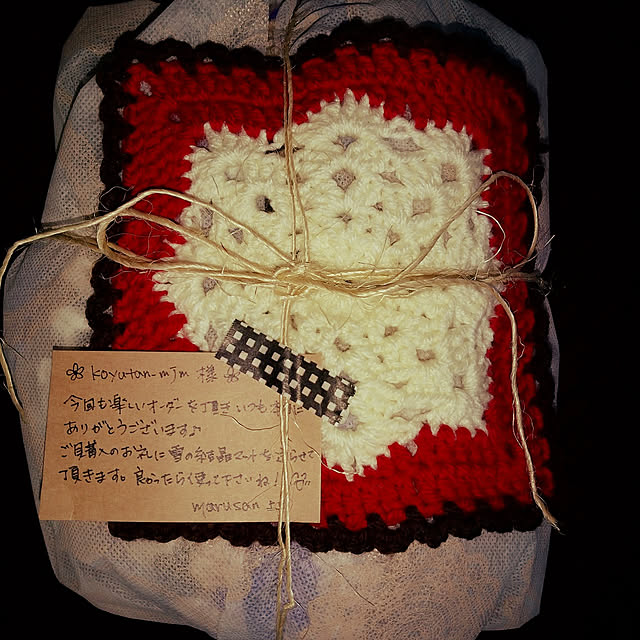 koyutan-mjm 様
今回も楽しいオーダーを頂き いつも本当に
ありがとうございます♪
ご購入のお礼に 雪の結晶マットを送らせて
頂きます。良かったら使って下さいね!
marusan